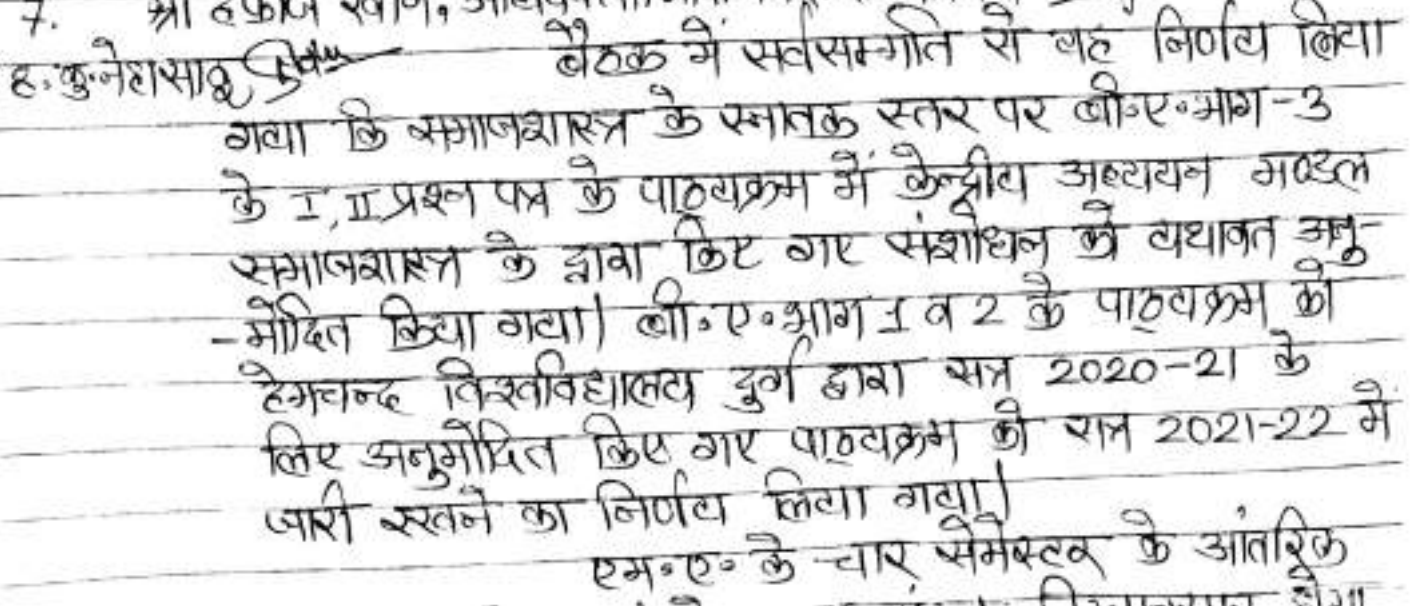 7. श्री
ह. कु. नेहा साहू बैठक में सर्वसम्मति से यह निर्णय लिया
गया कि समाजशास्त्र के स्नातक स्तर पर बी.ए. भाग-3
के I, II प्रश्न पत्र के पाठ्यक्रम में केन्द्रीय अध्ययन मण्डल
समाजशास्त्र के द्वारा किए गए संशोधन को यथावत अनु-
-मोदित किया गया। बी.ए. भाग 1 व 2 के पाठ्यक्रम को
हेमचन्द विश्वविद्यालय दुर्ग द्वारा सत्र 2020-21 के
लिए अनुमोदित किए गए पाठ्यक्रम को सत्र 2021-22 में
जारी रखने का निर्णय लिया गया।
एम.ए. के चार सेमेस्टर के आंतरिक